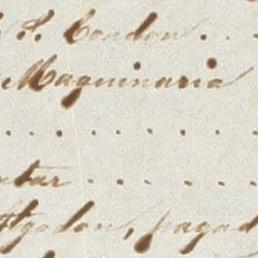 S. Condon . .
Maquinaria
. . . . . . . .
tar . . . . . .
Algodon, pagad